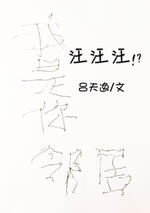 我是你鄰居
汪汪汪!?
呂天逸/文